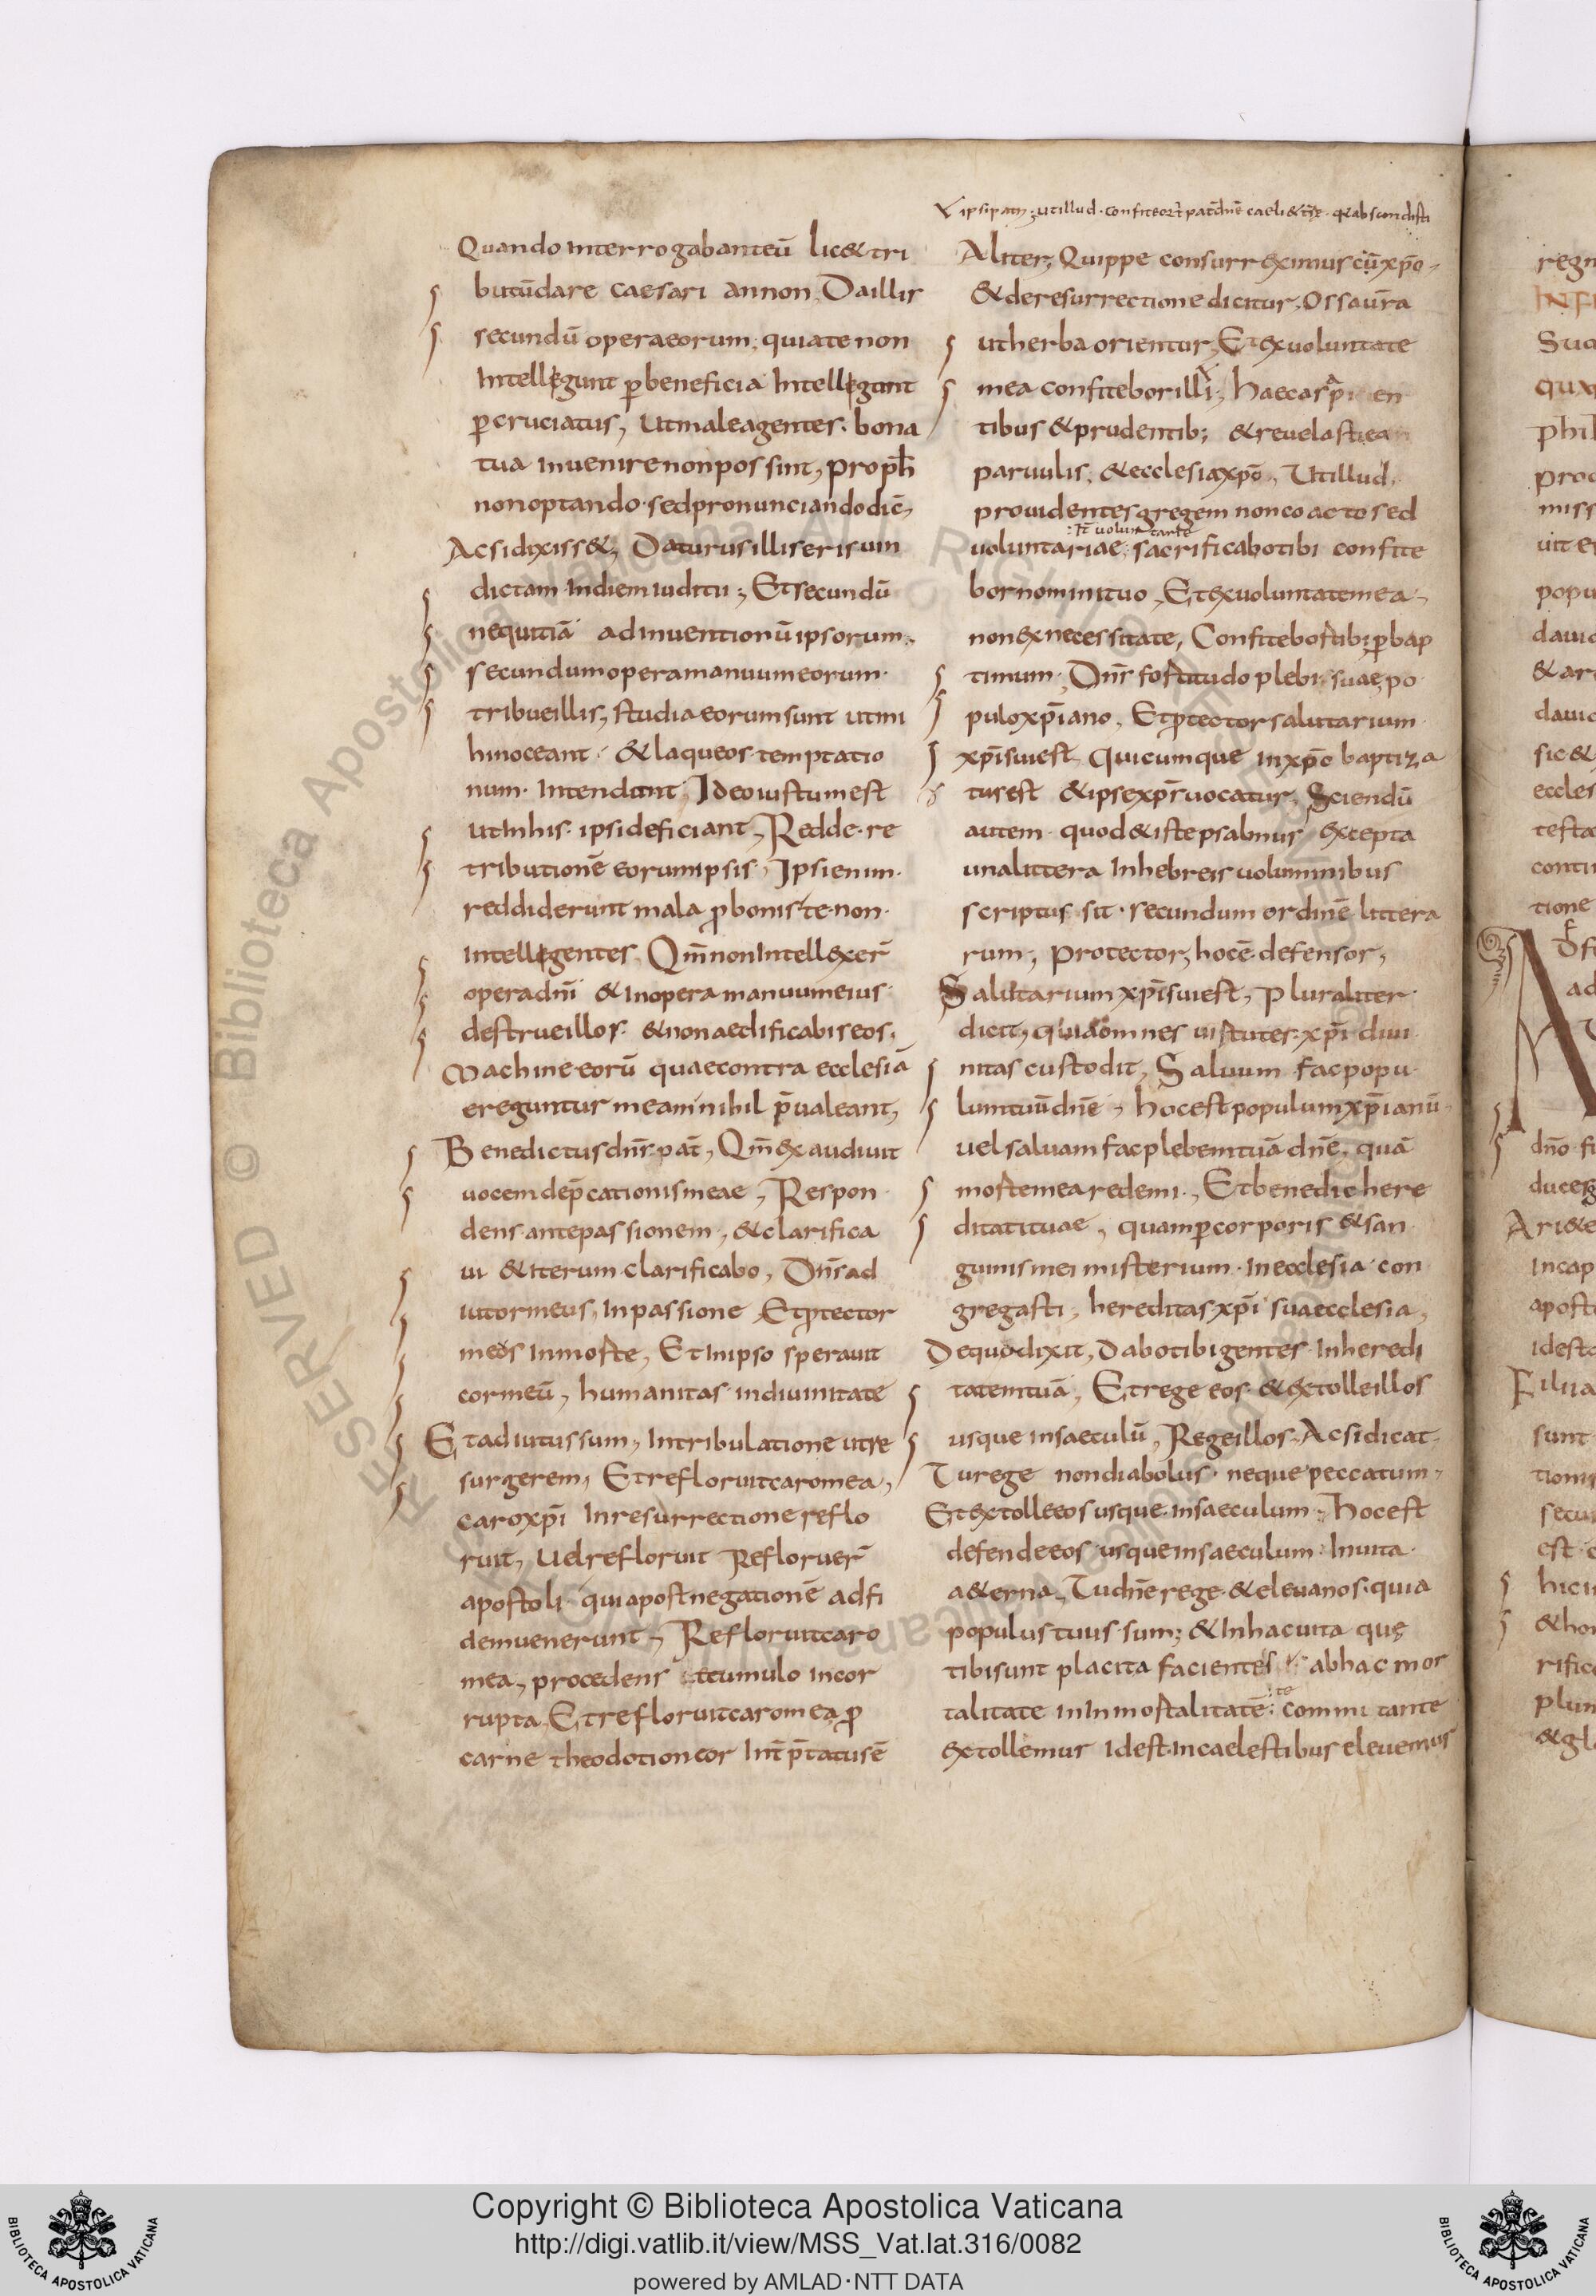 ipsi pat̄; ut illud. confiteor t̄ pat̄ dn̄e caeli & trae. q& abscondisti
Quando interrogabant eū lic& tri
butū dare caesari an non, Da illis
secundū opera eorum; qui a te non
Intellegunt p̱ beneficia Intellegant
p̱ cruciatus, Ut male agentes. bona
tua invenire non possint, proph̄
non optando. sed pronunciando dic̄,
Ac si dixiss&, Daturus illis eris vin
dictam In diem iuditii; Et secundū
nequitiā adinventionū ipsorum.
secundum opera manuum eorum.
tribue illis, studia eorum sunt ut mi
hi noceant. & laqueos temptatio
num. Intendunt, Ideo iustum est
ut In his. ipsi deficiant, Redde. re
tributionē eorum ipsis, Ipsi enim.
reddiderunt mala p̱ bonis te non.
Intellegentes. Qm̄ non Intellexer̄
opera dn̄i & In opera manuum eius.
destrue illos. & non aedificabis eos.
Machine eorū quae contra ecclesiā
ereguntur meam nihil p̄valeant,
Benedictus dn̄s pat̄, Qm̄ exaudivit
vocem dep̄cationis meae, Respon
dens ante passionem, & clarifica
vi & iterum clarificabo, Dn̄s ad
iutor meus, In passione Et p̱tector
meos In morte, Et In ipso speravit
cor meū, humanitas in divinitate
Et adiutus sum, In tribulatione ut re
surgerem, Et refloruit caro mea,
caro xp̄i In resurrectione reflo
ruit, Vel refloruit Refloruer̄
apostoli qui apost negationē ad fi
dem venerunt, Refloruit caro
mea, procedens tumulo incor
rupta. Et refloruit caro mea, p̱
carne theodotion cor Int̄p̄tatus ē
Aliter, Quippe consurreximus cū xp̄o.
& de resurrectione dicitur, Ossa ūra
ut herba orientur, Et ex voluntate
mea confitebor illi, Haec a sapien
tibus & prudentib; & revelasti ea
parvulis, & ecclesia xp̄o, Ut illud.
providentes gregem non coacto sed
It̄ voluntarie
voluntariae. sacrificabo tibi confite
bor nomini tuo, Et ex voluntate mea.
non ex necessitate, Confitebor tibi p̱ bap
timum. Dn̄s fortitudo plebi suae, po
pulo xp̄iano, Et p̱tector salutarium
xp̄i sui est, Quicumque in xp̄o baptiza
tus est & ipse xp̄s vocatur. Sciendū
autem. quod & iste psalmus excepta
una littera In hebreis voluminibus
scriptus sit. secundum ordinē littera
rum, Protector, hoc ē defensor,
Salutarium xp̄i sui est, Pluraliter
dicit, quia omnes virtutes. xp̄i divi
nitas custodit, Salvum fac popu
lum tuū dn̄e, hoc est populum xp̄ianū
vel salvam fac plebem tuā dn̄e. quā
morte mea redemi, Et benedic here
ditati tuae, quam p̱ corporis & san
guinis mei misterium. In ecclesia con
gregasti, hereditas xp̄i sua ecclesia,
De quo dixit, Dabo tibi gentes In heredi
tatem tuā, Et rege eos. & extolle illos
usque in saeculū, Rege illos, Ac si dicat.
Tu rege non diabolus. neque peccatum,
Et extolle eos usque in saeculum, Hoc est
defende eos usque in saeculum. In vita
a&erna, Tu dn̄e rege & eleva nos. quia
populus tuus sum; & In hac vita quę
tibi sunt placita facientes ab hac mor
talitate in Inmortalitatē. te commitante
extollemur Id est In caelestibus elevemur
Copyright © Biblioteca Apostolica Vaticana
http://digi.vatlib.it/view/MSS_Vat.lat.316/0082
powered by AMLAD·NTT DATA